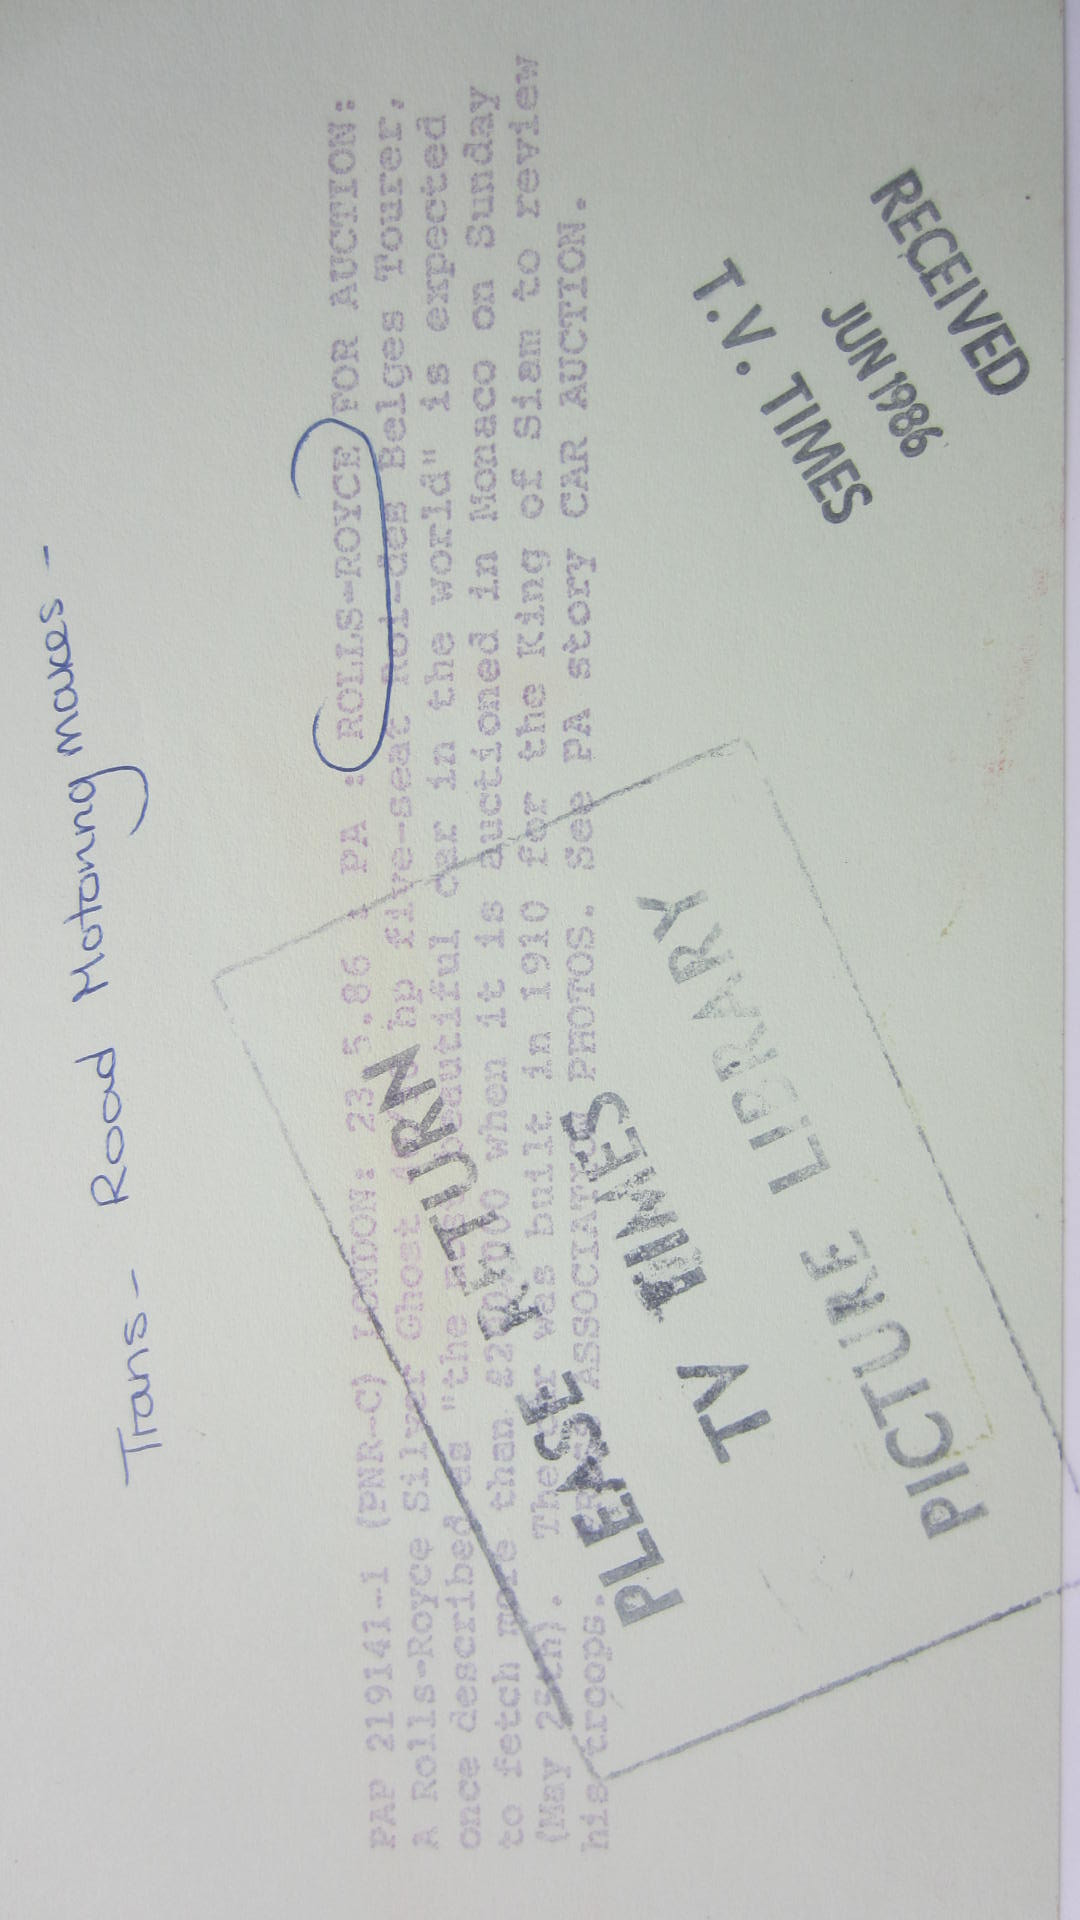 Trans - Road Motoring makes -
PAP 219141-1 (PNR-C) LONDON: 23.5.86 : PA : ROLLS-ROYCE FOR AUCTION:
A Rolls-Royce Silver Ghost hp five-seat Roi-des Belges Tourer,
once described as "the most beautiful car in the world" is expected
to fetch more than when it is auctioned in Monaco on Sunday
(May 25th). The car was built in 1910 for the King of Siam to review
his troops. PRESS ASSOCIATION PHOTOS. See PA story CAR AUCTION.
PLEASE RETURN
TV TIMES
PICTURE LIBRARY
RECEIVED
JUN 1986
T.V. TIMES